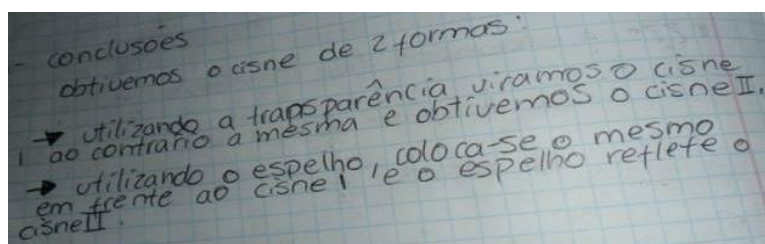 - conclusões
obtivemos o cisne de 2 formas:
→ utilizando a transparência viramos o cisne
1 ao contrario a mesma e obtivemos o cisne II.
→ utilizando o espelho, coloca-se o mesmo
em frente ao cisne 1, e o espelho reflete o
cisne II.